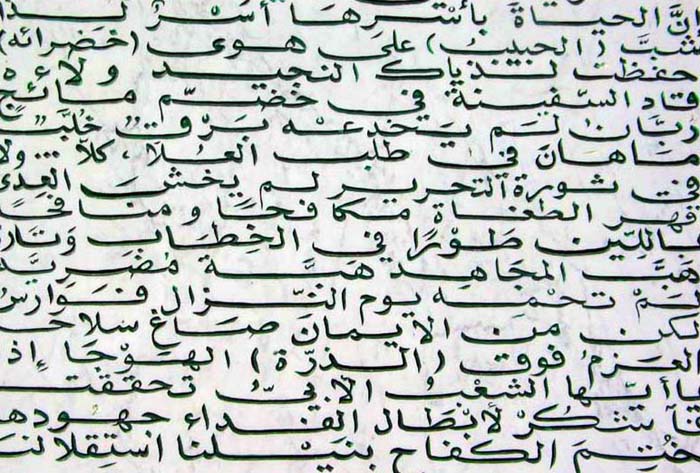 إنَّ الحياةَ بأسْرِها أسْرٌ لذا
شبَّ (الحبيبُ) على هوى (خضرائه)
حفظت لذياك النجيد ولاءَه
قاد السّفينة في خضمّ مائج
رُبّان لم يَخدعه بَرْق خلّب
ما هانَ في طلب العُلا، كلاّ ... ولا
في ثورة التحرير لم يخشَ العِدى
قهر الطغاة مكافحًا ومنافحًا
باللّين طَوْرًا في الخِطاب وتارة
هبَّ المجَاهد هبَّة مُضَريَّة
لمْ تحمه يوم النّزال فَوَارسُ
لكن من الايمان صاغ سلاحَه
العزمُ فوق (الذرّة) الهوْجا إذ
يا أيها الشعْبُ الأبيّ تحققت
فآشكُرْ لأبْطال الفداء جهودها
خُتمَ الكفاح بنيلنا استقلالنا